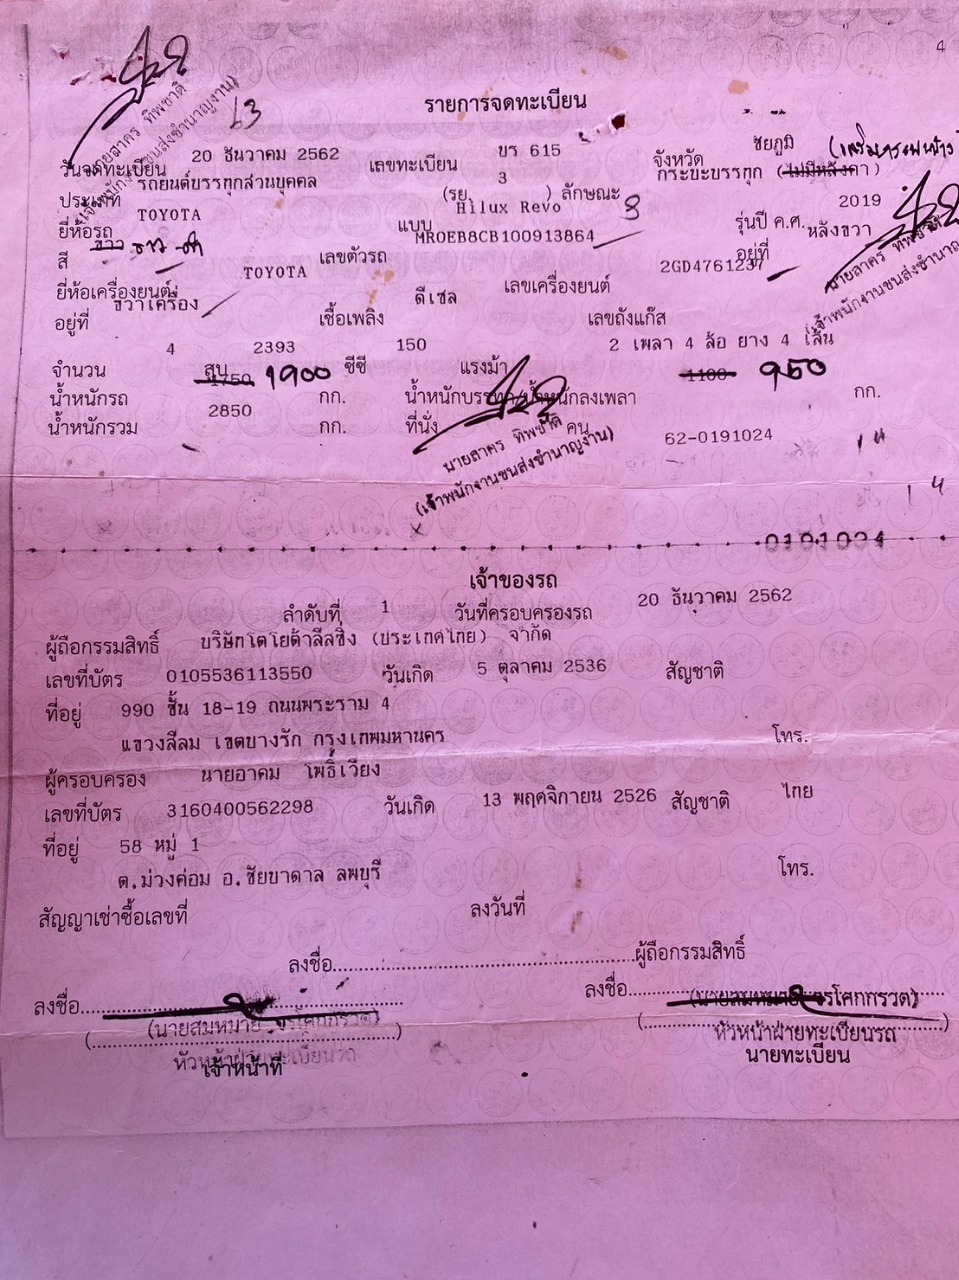 4
รายการจดทะเบียน
วันจดทะเบียน 20 ธันวาคม 2562 เลขทะเบียน บร 615 จังหวัด ชัยภูมิ
ประเภท รถยนต์บรรทุกส่วนบุคคล (รย. 3 ) ลักษณะ กระบะบรรทุก (ไม่มีหลังคา)
ยี่ห้อรถ TOYOTA แบบ Hilux Revo รุ่นปี ค.ศ. 2019
สี ขาว เลขตัวรถ MR0EB8CB100913864 อยู่ที่ หลังขวา
ยี่ห้อเครื่องยนต์ TOYOTA เลขเครื่องยนต์ 2GD4761237
อยู่ที่ ขวาเครื่อง เชื้อเพลิง ดีเซล เลขถังแก๊ส
จำนวน 4 สูบ 2393 ซีซี 150 แรงม้า 2 เพลา 4 ล้อ ยาง 4 เส้น
น้ำหนักรถ 1750 1900 กก. น้ำหนักบรรทุก/น้ำหนักลงเพลา 1100 950 กก.
น้ำหนักรวม 2850 กก. ที่นั่ง คน
62-0191024
นายสาคร ทิพชาติ
(เจ้าพนักงานขนส่งชำนาญงาน)
0191024
เจ้าของรถ
ลำดับที่ 1 วันที่ครอบครองรถ 20 ธันวาคม 2562
ผู้ถือกรรมสิทธิ์ บริษัทโตโยต้าลีสซิ่ง (ประเทศไทย) จำกัด
เลขที่บัตร 0105536113550 วันเกิด 5 ตุลาคม 2536 สัญชาติ
ที่อยู่ 990 ชั้น 18-19 ถนนพระราม 4
แขวงสีลม เขตบางรัก กรุงเทพมหานคร โทร.
ผู้ครอบครอง นายอาคม โพธิ์เวียง
เลขที่บัตร 3160400562298 วันเกิด 13 พฤศจิกายน 2526 สัญชาติ ไทย
ที่อยู่ 58 หมู่ 1
ต.ม่วงค่อม อ.ชัยบาดาล ลพบุรี โทร.
สัญญาเช่าซื้อเลขที่ ลงวันที่
ลงชื่อ ผู้ถือกรรมสิทธิ์
ลงชื่อ ลงชื่อ
(นายสมหมาย จรโคกกรวด) (นายสมหมาย จรโคกกรวด)
หัวหน้าฝ่ายทะเบียนรถ หัวหน้าฝ่ายทะเบียนรถ
เจ้าหน้าที่ นายทะเบียน